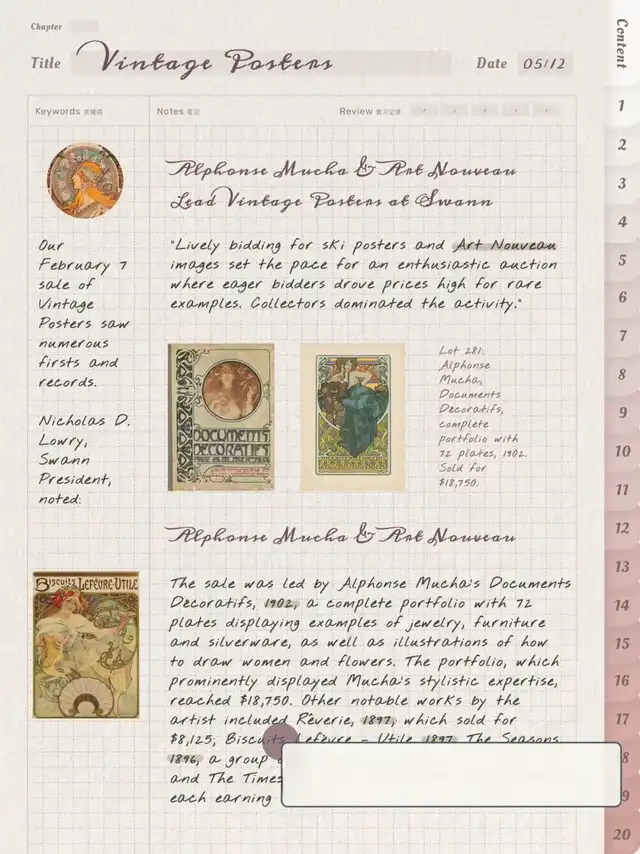 Chapter
Title Vintage Posters Date 05/12
Keywords 关键词 Notes 笔记 Review 复习记录
Alphonse Mucha & Art Nouveau
Lead Vintage Posters at Swann
Our
February 7
sale of
Vintage
Posters saw
numerous
firsts and
records.
Nicholas D.
Lowry,
Swann
President,
noted:
"Lively bidding for ski posters and Art Nouveau
images set the pace for an enthusiastic auction
where eager bidders drove prices high for rare
examples. Collectors dominated the activity."
DOCUMENTS
DECORATIFS
Lot 281:
Alphonse
Mucha,
Documents
Decoratifs,
complete
portfolio with
72 plates, 1902.
Sold for
$18,750.
Alphonse Mucha & Art Nouveau
Biscuits Lefèvre-Utile
The sale was led by Alphonse Mucha's Documents
Decoratifs, 1902, a complete portfolio with 72
plates displaying examples of jewelry, furniture
and silverware, as well as illustrations of how
to draw women and flowers. The portfolio, which
prominently displayed Mucha's stylistic expertise,
reached $18,750. Other notable works by the
artist included Rêverie, 1897, which sold for
$8,125, Biscuits Lefèvre - Utile, 1897, The Seasons,
1896, a group
and The Times
each earning
Content
1
2
3
4
5
6
7
8
9
10
11
12
13
14
15
16
17
8
9
20